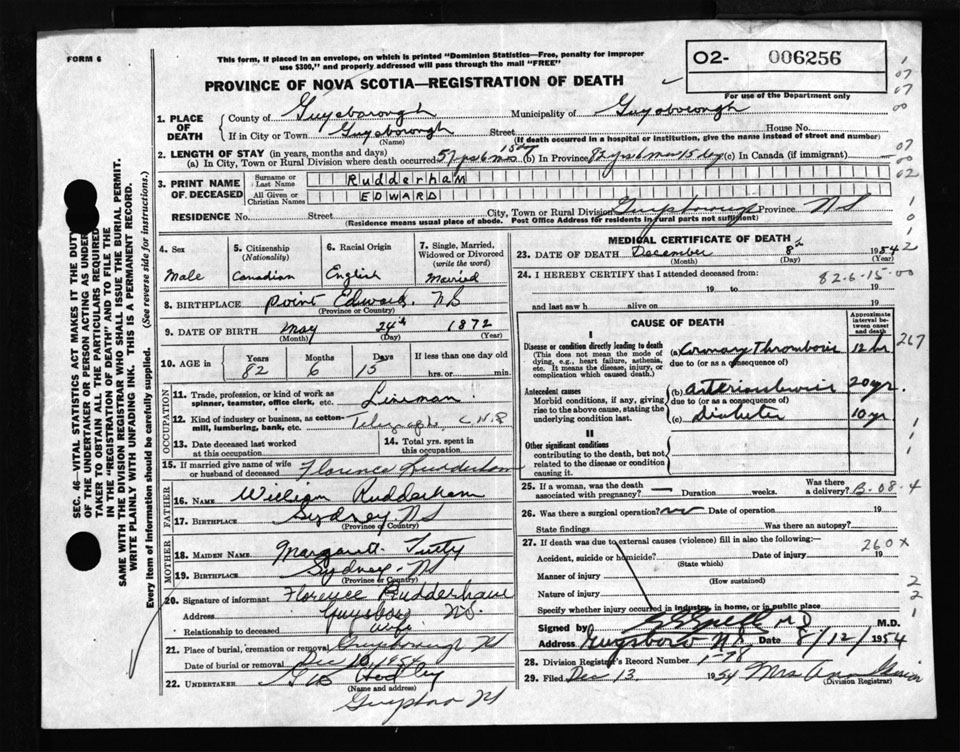 FORM 6
This form, if placed in an envelope, on which is printed "Dominion Statistics—Free, penalty for improper
use $300," and properly addressed will pass through the mail "FREE"
02- 006256
For use of the Department only
PROVINCE OF NOVA SCOTIA—REGISTRATION OF DEATH
1. PLACE OF DEATH
County of Guysborough Municipality of Guysborough
If in City or Town Guysborough Street House No.
(Name) (If death occurred in a hospital or institution, give the name instead of street and number)
2. LENGTH OF STAY (in years, months and days)
(a) In City, Town or Rural Division where death occurred 57 yrs 6 mos 15 dy (b) In Province 82 yrs 6 mo 15 dy (c) In Canada (if immigrant)
3. PRINT NAME OF DECEASED
Surname or Last Name Rudderham
All Given or Christian Names EDWARD
RESIDENCE No. Street City, Town or Rural Division Guysborough Province NS
(Residence means usual place of abode. Post Office Address for residents in rural parts not sufficient)
4. Sex
Male
5. Citizenship
(Nationality)
Canadian
6. Racial Origin
English
7. Single, Married,
Widowed or Divorced
(write the word)
Married
8. BIRTHPLACE Point Edward, NS
(Province or Country)
9. DATE OF BIRTH May 24th 1872
(Month) (Day) (Year)
10. AGE in Years Months Days If less than one day old
82 6 15 hrs. or min.
OCCUPATION
11. Trade, profession, or kind of work as
spinner, teamster, office clerk, etc. Lineman
12. Kind of industry or business, as cotton-
mill, lumbering, bank, etc. Telegraph, CNR
13. Date deceased last worked
at this occupation
14. Total yrs. spent in
this occupation
15. If married give name of wife
or husband of deceased Florence Rudderham
FATHER
16. NAME William Rudderham
17. BIRTHPLACE Sydney NS
(Province or Country)
MOTHER
18. MAIDEN NAME Margarett Tutty
19. BIRTHPLACE Sydney NS
(Province or Country)
20. Signature of informant Florence Rudderham
Address Guysboro NS
Relationship to deceased Wife
21. Place of burial, cremation or removal Guysborough NS
Date of burial or removal Dec 10 1954
22. UNDERTAKER Hadley
(Name and address)
Guysboro NS
MEDICAL CERTIFICATE OF DEATH
23. DATE OF DEATH December 8 1954
(Month) (Day) (Year)
24. I HEREBY CERTIFY that I attended deceased from:
82-6-15-00
19 to 19
and last saw h alive on 19
CAUSE OF DEATH
Approximate interval between onset and death
I
Disease or condition directly leading to death
(This does not mean the mode of dying, e.g., heart failure, asthenia, etc. It means the disease, injury, or complication which caused death.)
(a) Coronary Thrombosis 12 hr
due to (or as a consequence of)
267
Antecedent causes
Morbid conditions, if any, giving rise to the above cause, stating the underlying condition last.
(b) arteriosclerosis 20 yr.
due to (or as a consequence of)
(c) Diabetes 10 yr
II
Other significant conditions
contributing to the death, but not
related to the disease or condition
causing it.
25. If a woman, was the death
associated with pregnancy? Duration weeks. Was there a delivery? B-08-4
26. Was there a surgical operation? no Date of operation 19
State findings Was there an autopsy?
27. If death was due to external causes (violence) fill in also the following:
260X
Accident, suicide or homicide? Date of injury 19
(State which)
Manner of injury
(How sustained)
Nature of injury
Specify whether injury occurred in industry, in home, or in public place
Signed by MD M.D.
Address Guysboro NS Date 8/12/1954
28. Division Registrar's Record Number 1-78
29. Filed Dec 13 1954 Mrs
(Division Registrar)
SEC. 46—VITAL STATISTICS ACT MAKES IT THE DUTY
OF THE UNDERTAKER OR PERSON ACTING AS UNDER-
TAKER TO OBTAIN ALL THE PARTICULARS REQUIRED
IN THE "REGISTRATION OF DEATH" AND TO FILE THE
SAME WITH THE DIVISION REGISTRAR WHO SHALL ISSUE THE BURIAL PERMIT.
WRITE PLAINLY WITH UNFADING INK. THIS IS A PERMANENT RECORD.
Every item of information should be carefully supplied. (See reverse side for instructions.)